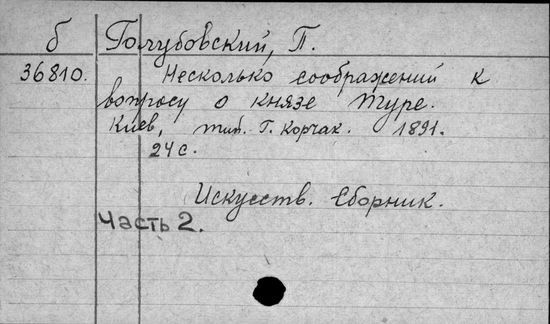 б Голубовский, П.
36810. Несколько соображений к
вопросу о князе Туре.
Киев, тип. Г. Корчак. 1891.
24 с.
Искусств. Сборник.
Часть 2.